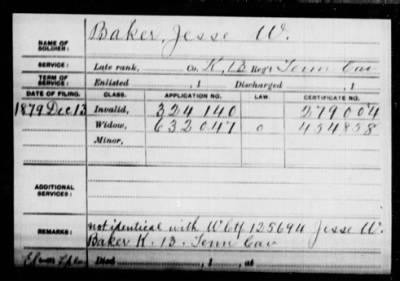 NAME OF SOLDIER: Baker, Jesse W.
SERVICE: Late rank, Co. K, 13 Reg't Tenn Cav
TERM OF SERVICE: Enlisted , 1 Discharged , 1
DATE OF FILING. CLASS. APPLICATION NO. LAW. CERTIFICATE NO.
1879 Dec 13 Invalid, 324 140 279 004
Widow, 632 047 454858
Minor,
ADDITIONAL SERVICES:
REMARKS: not identical with 125694 Jesse W.
Baker K. 13. Tenn Cav
Died , 1 , at